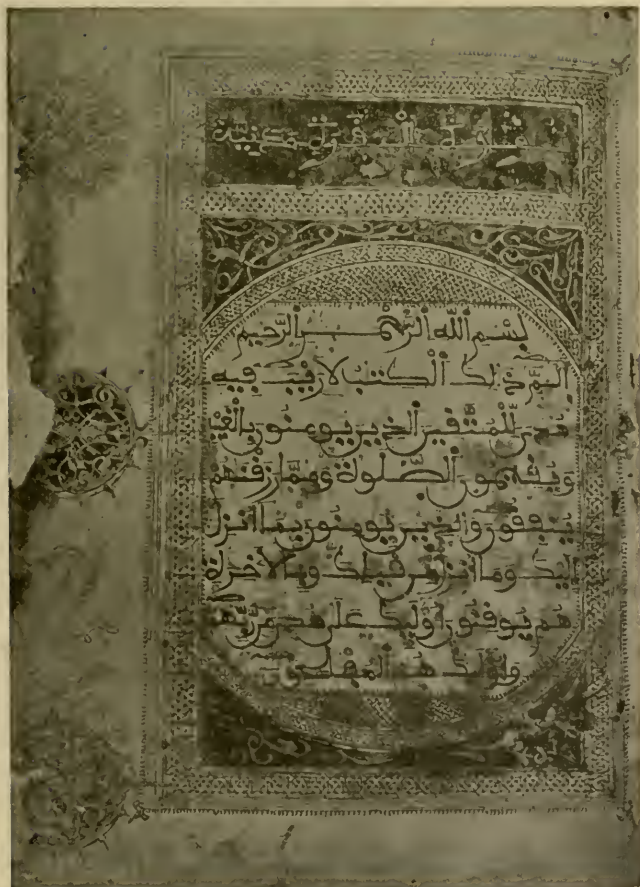 سورة البقرة مدنية
بسم الله الرحمن الرحيم
الم ذلك الكتب لا ريب فيه
هدى للمتقين الذين يومنون بالغيب
ويقيمون الصلوة ومما رزقنهم
ينفقون والذين يومنون بما انزل
اليك وما انزل من قبلك وبالاخرة
هم يوقنون اوليك على هدى من ربهم
واوليك هم المفلحون